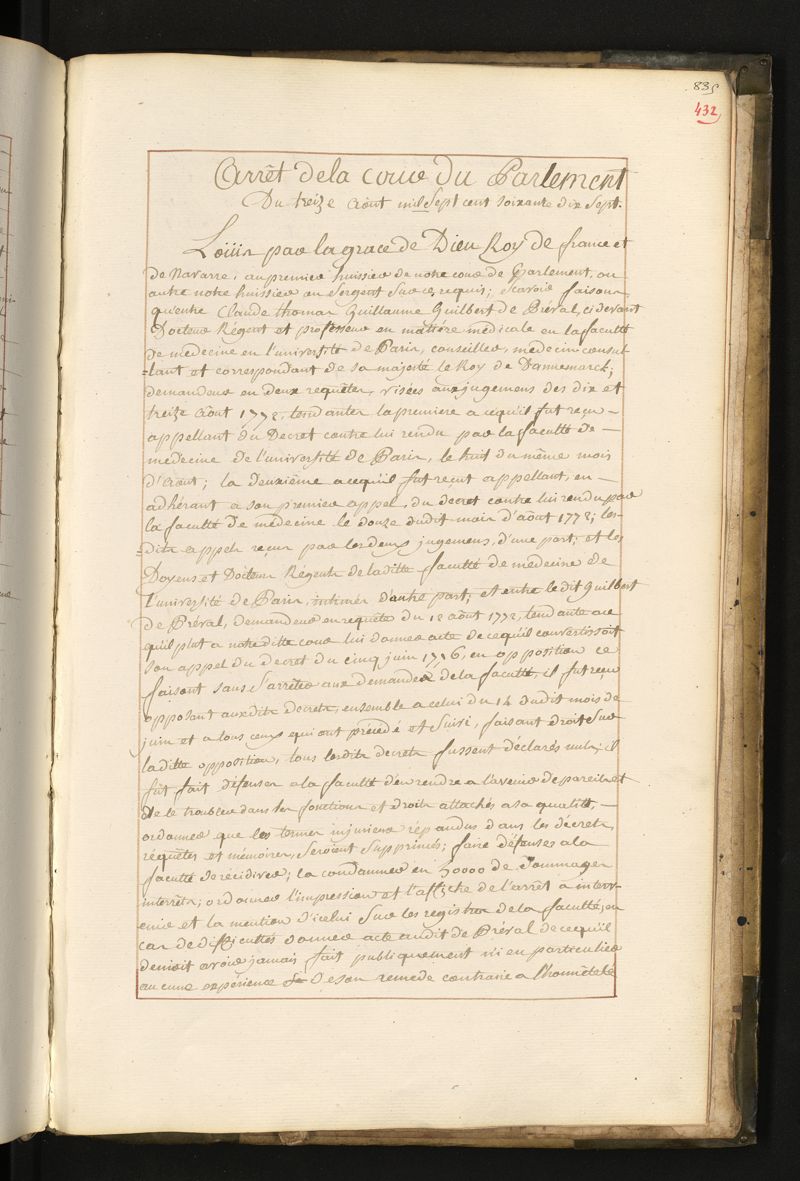 835
432
Arrêt de la cour du Parlement
Du treize Août mil Sept cent Soixante dix Sept.
Loüis par la grace de Dieu Roy de france et
de Navarre, au premier huissier de notre cour de Parlement, ou
autre notre huissier ou Sergent Sur ce requis; Scavoir faisons
qu'entre Claude thomas Guillaume Guilbert de Préval, ci devant
Docteur Régent et professeur en matiére médicale en la faculté
de medecine en l'université de Paris, conseiller, medecin consul
-tant et correspondant de sa majesté le Roy de Dannemarck;
demandeur en deux requêtes, visées aux jugemens des dix et
treize Août 1772, tendantes la premiere a ce qu'il fut reçu –
appellant du Decret contre lui rendu par la faculté de –
medecine de l'université de Paris, le huit du même mois
d'Août; la deuxiême a ce qu'il fut reçut appellant, en –
adhérant a son premier appel, du decret contre lui rendu par
la faculté de médecine le douze dudit mois d'août 1772; les-
-dits appels reçus par les deux jugemens, d'une part; et les
Doyens et Docteurs Régents de la ditte faculté de medecine de
l'université de Paris, intimés d'autre part, et entre le dit Guilbert
de Préval, demandeur en requête du 12 août 1777, tendante a ce
qu'il plut a notre ditte cour lui donner acte de ce qu'il convertissoit
son appel du decret du cinq juin 1776, en opposition ce
faisant sans S'arrêter aux demandes de la faculté, il fut reçu
opposant auxdits decrets, ensemble a celui du 14 dudit mois de
juin et a tous ceux qui ont précédé et Suivi, faisant droit Sur
la ditte opposition, tous lesdits decrets fussent déclarés nuls; il
fut fait défenses a la faculté d'en rendre a l'avenir de pareils et
de le troubler dans les fonctions et droits attachés a sa qualité, –
ordonner que les termes injurieux répandus dans les décrets,
requêtes et mémoires, Seroient Supprimés; faire défenses a la
faculté de récidiver; la condamner en 50000 de dommages
interrêts; ordonner l'impression et l'affiche de l'arrêt a interv-
enir et la mention d'icelui Sur les registres de la faculté; en
cas de difficultés donner acte audit de Préval de ce qu'il
denioit avoir jamais fait publiquement ni en particulier
aucune expérience de son remede contraire a l'honnêteté